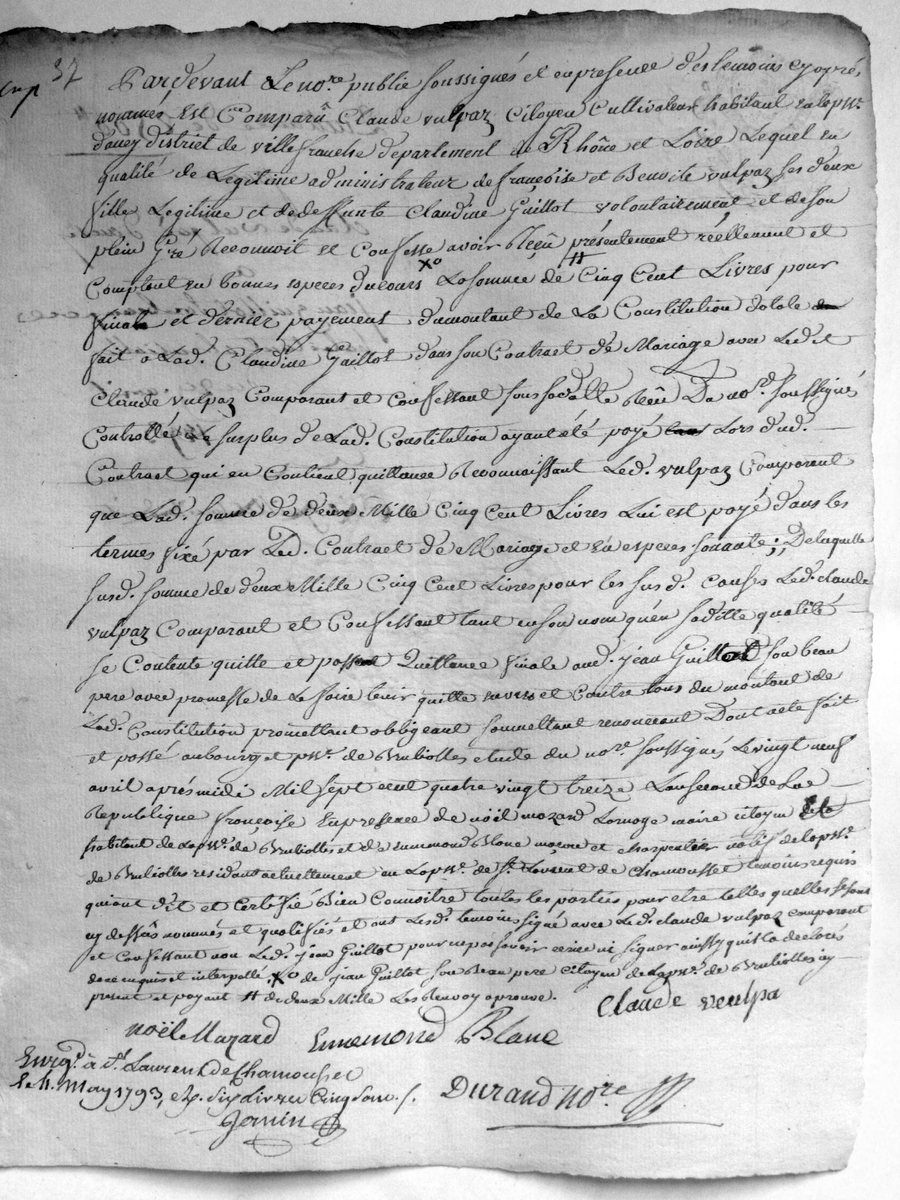 37
Pardevant Le no.re public soussignés et en presence des temoins cy après
nommes Est Comparû Claude vulpaz Citoyen Cultivateur habitant en la p.sse
d'aucy district de villefranche departement de Rhône et Loire Lequel en
qualité de Legitime administrateur de françoise et Benoite vulpaz ses deux
fille Legitime et de deffunte Claudine Guillot volontairement et de son
plein Gré Reconnoit et Confesse avoir Reçû présentement réellement et
Comptant en bonnes especes du cours x° La somme de # Cinq Cent Livres pour
finale et dernier payement du montant de La Constitution dotale
fait à Lad. Claudine Guillot dans son Contract de Mariage avec Led.t
Claude vulpaz Comparant et Confessant sous sa datte Reçû Du no.re soussigné
Controllé Le surplus de Lad. Constitution ayant été payé Lors dud.
Contract qui en Contient quittance Reconnaissant Led. vulpaz Comparent
que Lad. somme de deux Mille Cinq Cent Livres Lui est payé dans les
termes fixé par Led. Contract de Mariage et en especes sonante; De laquelle
susd. somme de deux Mille Cinq Cent Livres pour les susd. causes Led. claude
vulpaz Comparant et Confessant tant en son nom qu'en sa ditte qualité
se Contente quitte et passe Quittance finale aud. jean Guillot son beau
pere avec promesse de Le faire tenir quitte envers et Contre tous du montant de
Lad. Constitution promettant obligeant soumettant renoncant Dont acte fait
et passé au bourg et p.sse de Brullioles etude du no.re soussignés Le vingt neuf
avril après midi Mil sept cent quatre vingt treize L'an second de La
République françoise En presence de nöel mazard Lernoge maire citoyen
habitant de lap.sse de Brullioles et de ennemond Blanc maçon et charpentier natif de lap.sse
de Brullioles residant actuellement en La p.sse de St. Laurent de Chamousset temoins requis
qui ont dit et Certifié Bien Connoitre toutes les parties pour etre telles quelles se sont
cy dessûs nommés et qualifiés et ont Lesd. temoins signé avec Led. claude vulpaz comparant
et Confessant non Led. jean Guillot pour ne pas savoir ecrire ni signer ainssy qu'il la declaré
de ce enquis et interpellé x° de jean Guillot son Beau pere citoyen de lap.sse de Brullioles icy
present et payant # de deux Mille Les Renvoy aprouvé.
Claude veulpa
noël Mazard Ennemond Blanc
Enrg.é à St. Laurent de Chamousset
le 4. May 1793, et. Six Livres Cinq Sous /.
Jamin
Durand no.re